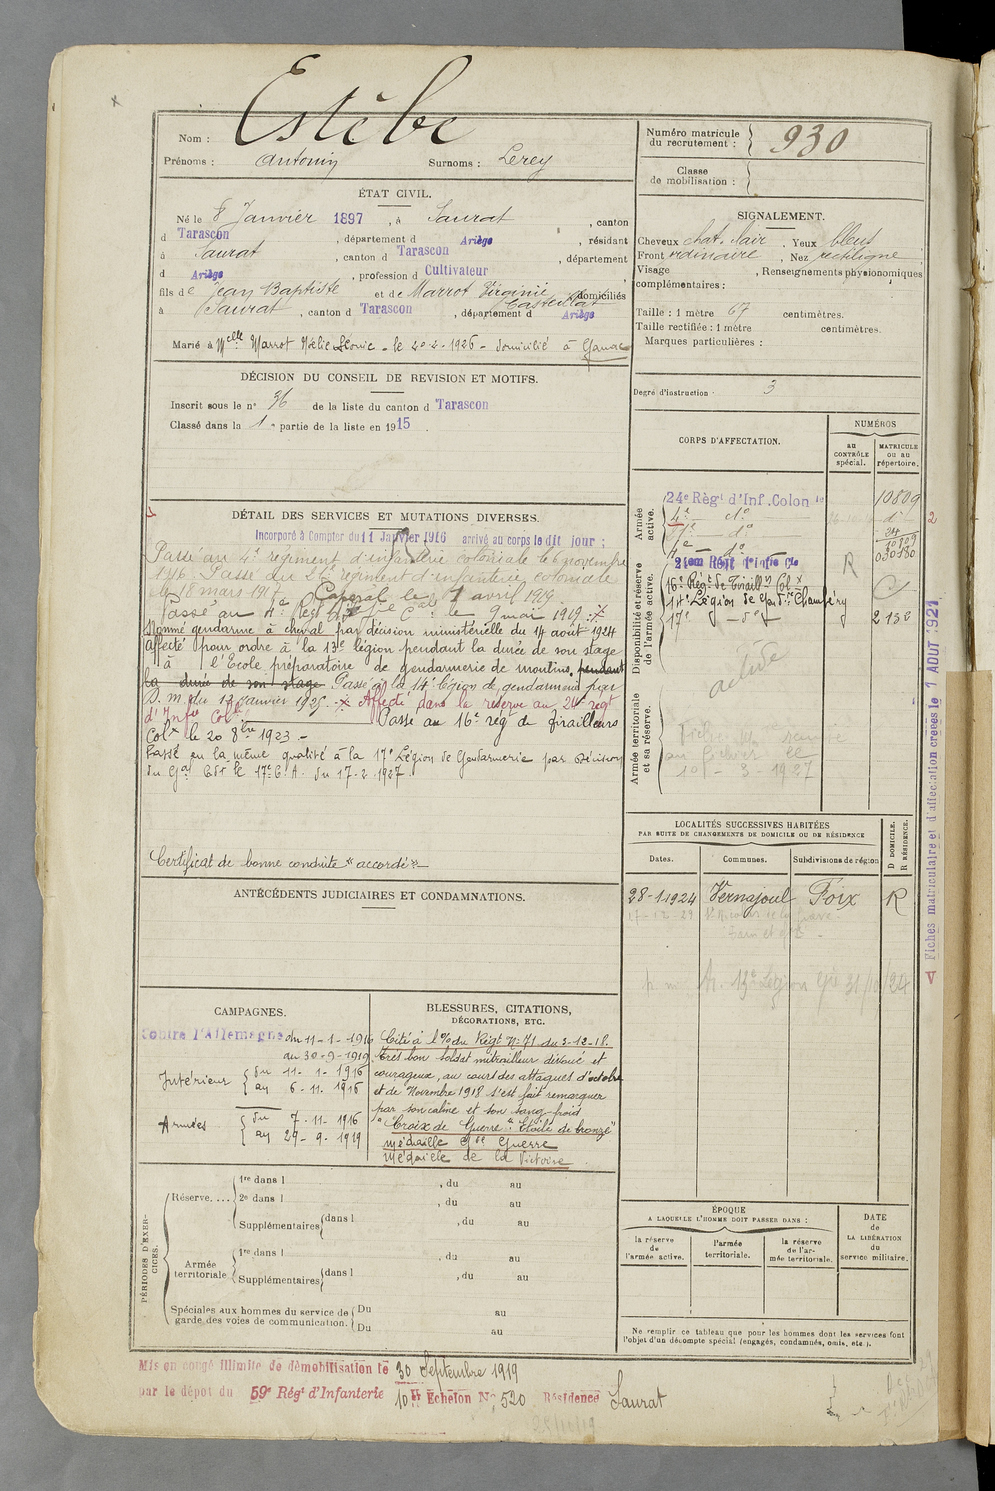 Estèbe
Nom :
Prénoms : Antonin Surnoms : Lerey
Numéro matricule
du recrutement : 930
Classe
de mobilisation :
ÉTAT CIVIL.
Né le 8 Janvier 1897, à Saurat, canton
d Tarascon, département d Ariège, résidant
à Saurat, canton d Tarascon, département
d Ariège, profession d Cultivateur
fils de Jean Baptiste et de Marrot Virginie domiciliés
à Saurat, canton d Tarascon, département d Ariège
Marié à Melle Marrot Noélie Léonie - le 20-2-1926 - domicilié à
SIGNALEMENT.
Cheveux chat. clair. Yeux bleus
Front ordinaire. Nez rectiligne
Visage , Renseignements physionomiques
complémentaires :
Taille : 1 mètre 67 centimètres.
Taille rectifiée : 1 mètre centimètres.
Marques particulières :
Degré d'instruction : 3
DÉCISION DU CONSEIL DE REVISION ET MOTIFS.
Inscrit sous le n° 36 de la liste du canton d Tarascon
Classé dans la 1e partie de la liste en 1915
DÉTAIL DES SERVICES ET MUTATIONS DIVERSES.
Incorporé à Compter du 11 Janvier 1916 arrivé au corps le dit jour ;
Passé au 4e régiment d'infanterie coloniale le 6 novembre
1916. Passé au 21e régiment d'infanterie coloniale
le 18 mars 1917. Caporal le 1 avril 1919.
Passé au 4e Régt d'Infie Cale le 9 mai 1919. X
Nommé gendarme à cheval par décision ministérielle du 14 août 1924
affecté pour ordre à la 13e légion pendant la durée de son stage
à l'Ecole préparatoire de gendarmerie de moulins, pendant
la durée de son stage Passé à la 14e légion de gendarmerie par
D. m. du 13 janvier 1925. X Affecté dans la réserve au 24e régt
d'Infie Cole Passé au 16e rég de tirailleurs
Colx le 20 8bre 1923 -
Passé en la même qualité à la 17e Légion de Gendarmerie par Décision
du Gal Cdt le 17e C.A. du 17-2-1927
Certificat de bonne conduite "accordé"
CORPS D'AFFECTATION.
NUMÉROS
au
CONTRÔLE
spécial.
MATRICULE
ou au
répertoire.
Armée
active.
24e Régt d'Inf. Colon le 10809
4e do do
21e do
4e do
Disponibilité et réserve
de l'armée active.
24em Régt d'Infie Cle R
16e Régt de Tiraillrs Colx
14e Légion de Gendrie Chambéry
17e do 2132
active
Armée territoriale
et sa réserve.
10 - 3 - 1927
Fiches matriculaire et d'affectation créées le 1 AOUT 1921
LOCALITÉS SUCCESSIVES HABITÉES
PAR SUITE DE CHANGEMENTS DE DOMICILE OU DE RÉSIDENCE
D DOMICILE.
R RÉSIDENCE.
Dates. Communes. Subdivisions de région
28-1-1924 Vernajoul Foix R
ANTÉCÉDENTS JUDICIAIRES ET CONDAMNATIONS.
CAMPAGNES.
Contre l'Allemagne du 11-1-1916
au 30-9-1919
Intérieur { du 11-1-1916
au 6-11-1916
Armées { du 7-11-1916
au 29-9-1919
BLESSURES, CITATIONS,
DÉCORATIONS, ETC.
Cité à l'O/ du Régt N° 71 du 3-12-18.
Très bon soldat mitrailleur dévoué et
courageux, au court des attaques d'octobre
et de Novembre 1918 s'est fait remarquer
par son calme et son sang-froid
"Croix de Guerre" "Etoile de bronze"
médaille Gde Guerre
médaille de la Victoire.
PÉRIODES D'EXERCICES.
Réserve.... 1re dans l , du au
2e dans l , du au
Supplémentaires dans l , du au
Armée
territoriale 1re dans l , du au
Supplémentaires dans l , du au
Spéciales aux hommes du service de
garde des voies de communication. Du au
Du au
ÉPOQUE
A LAQUELLE L'HOMME DOIT PASSER DANS :
la réserve
de
l'armée active.
l'armée
territoriale.
la réserve
de l'armée
territoriale.
DATE
de
LA LIBÉRATION
du
service militaire.
Ne remplir ce tableau que pour les hommes dont les services font
l'objet d'un décompte spécial (engagés, condamnés, omis, etc.).
Mis en congé illimité de démobilisation le 30 Septembre 1919
par le dépôt du 59e Régt d'Infanterie 10e Echelon N° 520 Résidence Saurat